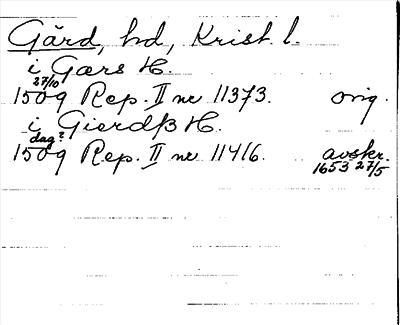 Gärd, hd, Krist. l.
i Gærs H.
27/10
1509 Rep. II nr 11373. orig.
i Gierdß H.
dag?
1509 Rep. II nr 11416. avskr.
1653 27/5